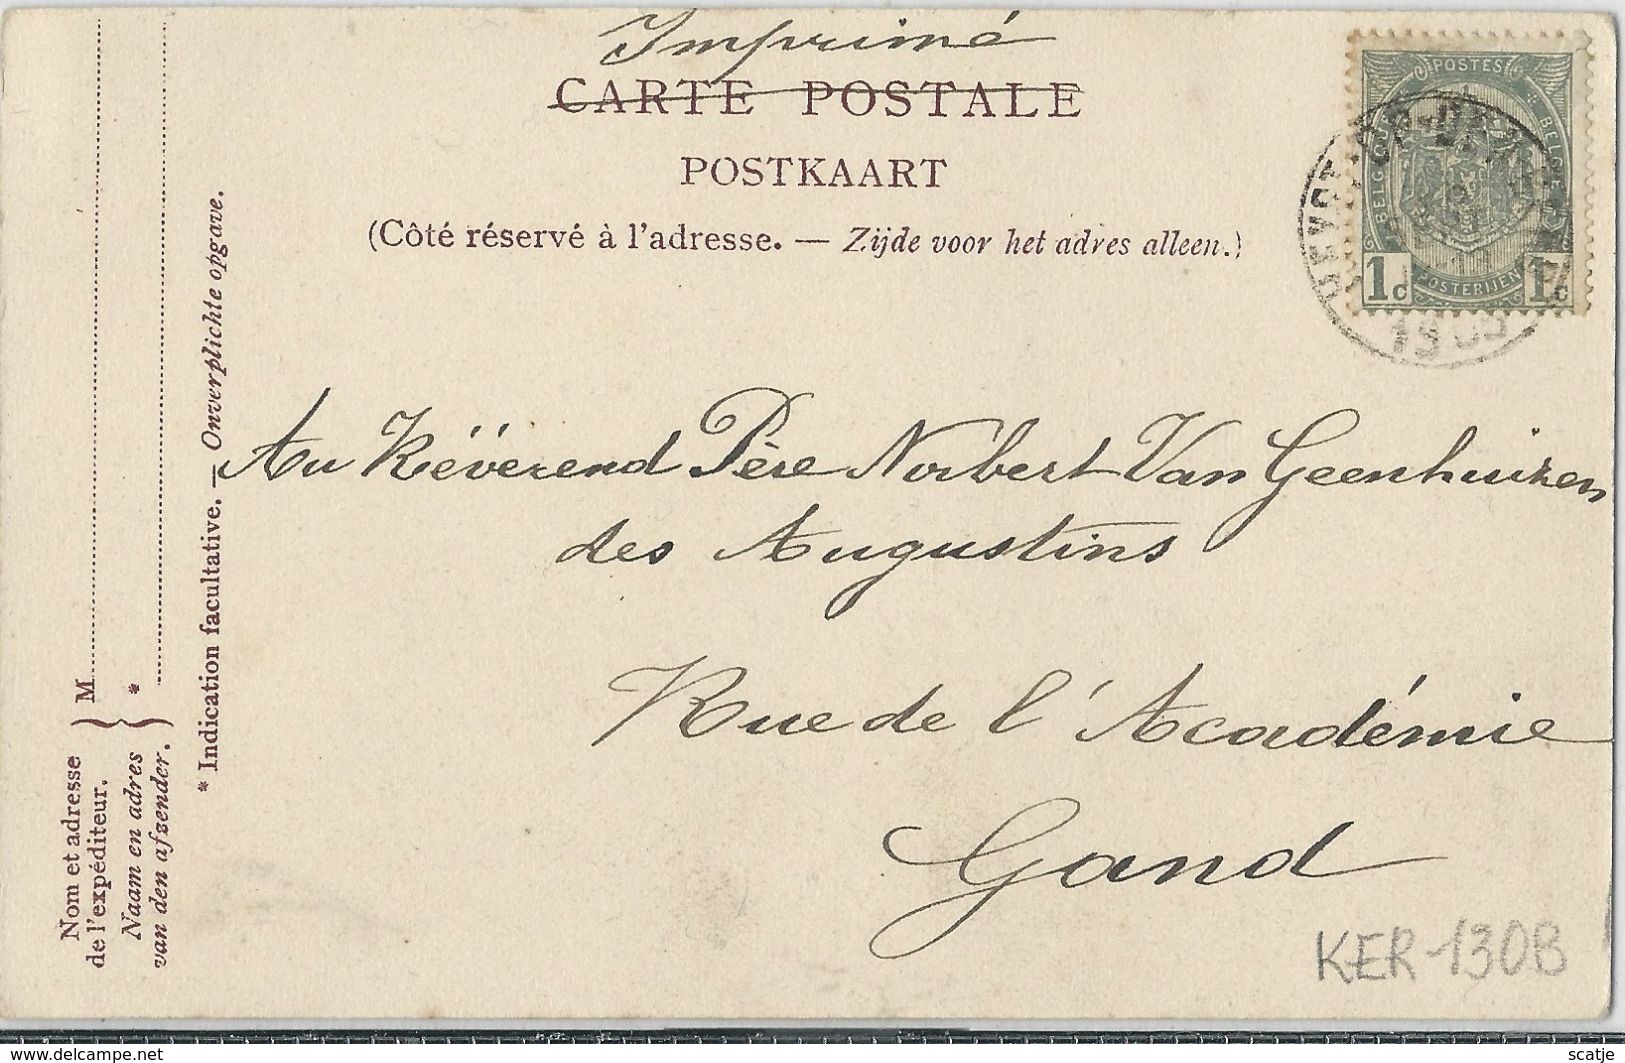 Imprimé
CARTE POSTALE
POSTKAART
(Côté réservé à l'adresse. — Zijde voor het adres alleen.)
POSTES
BELGIQUE
BELGIE
POSTERIJEN
1c 1c
HEYST-OP-DEN-
Au Révérend Père Norbert Van Geenhuizen
des Augustins
Rue de l'Académie
Gand
KER-130B
Nom et adresse
de l'expéditeur.
Naam en adres
van den afzender.
} M
} *
* Indication facultative. — Onverplichte opgave.
www.delcampe.net
scatje